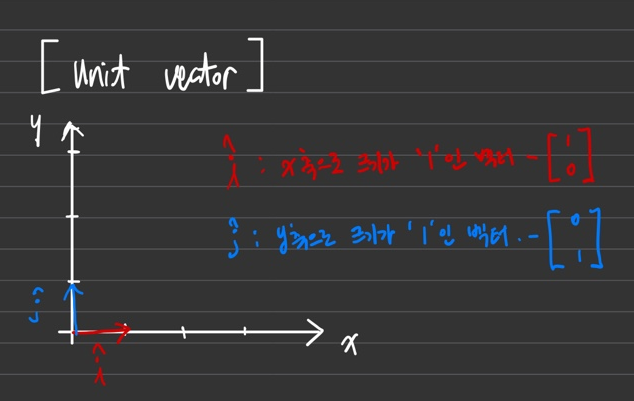 [unit vector]
y
î : x축으로 크기가 '1'인 벡터 - [1 0]
ĵ : y축으로 크기가 '1'인 벡터. - [0 1]
ĵ
x
î